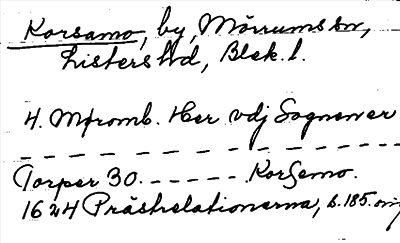 Korsamo, by, Mörrums sn,
Listers hd, Blek. l.
4. Mpromb. Her vdj Sognener
Torper 30. ------ Korsemo.
1624 Prästrelationerna, s. 185. orig